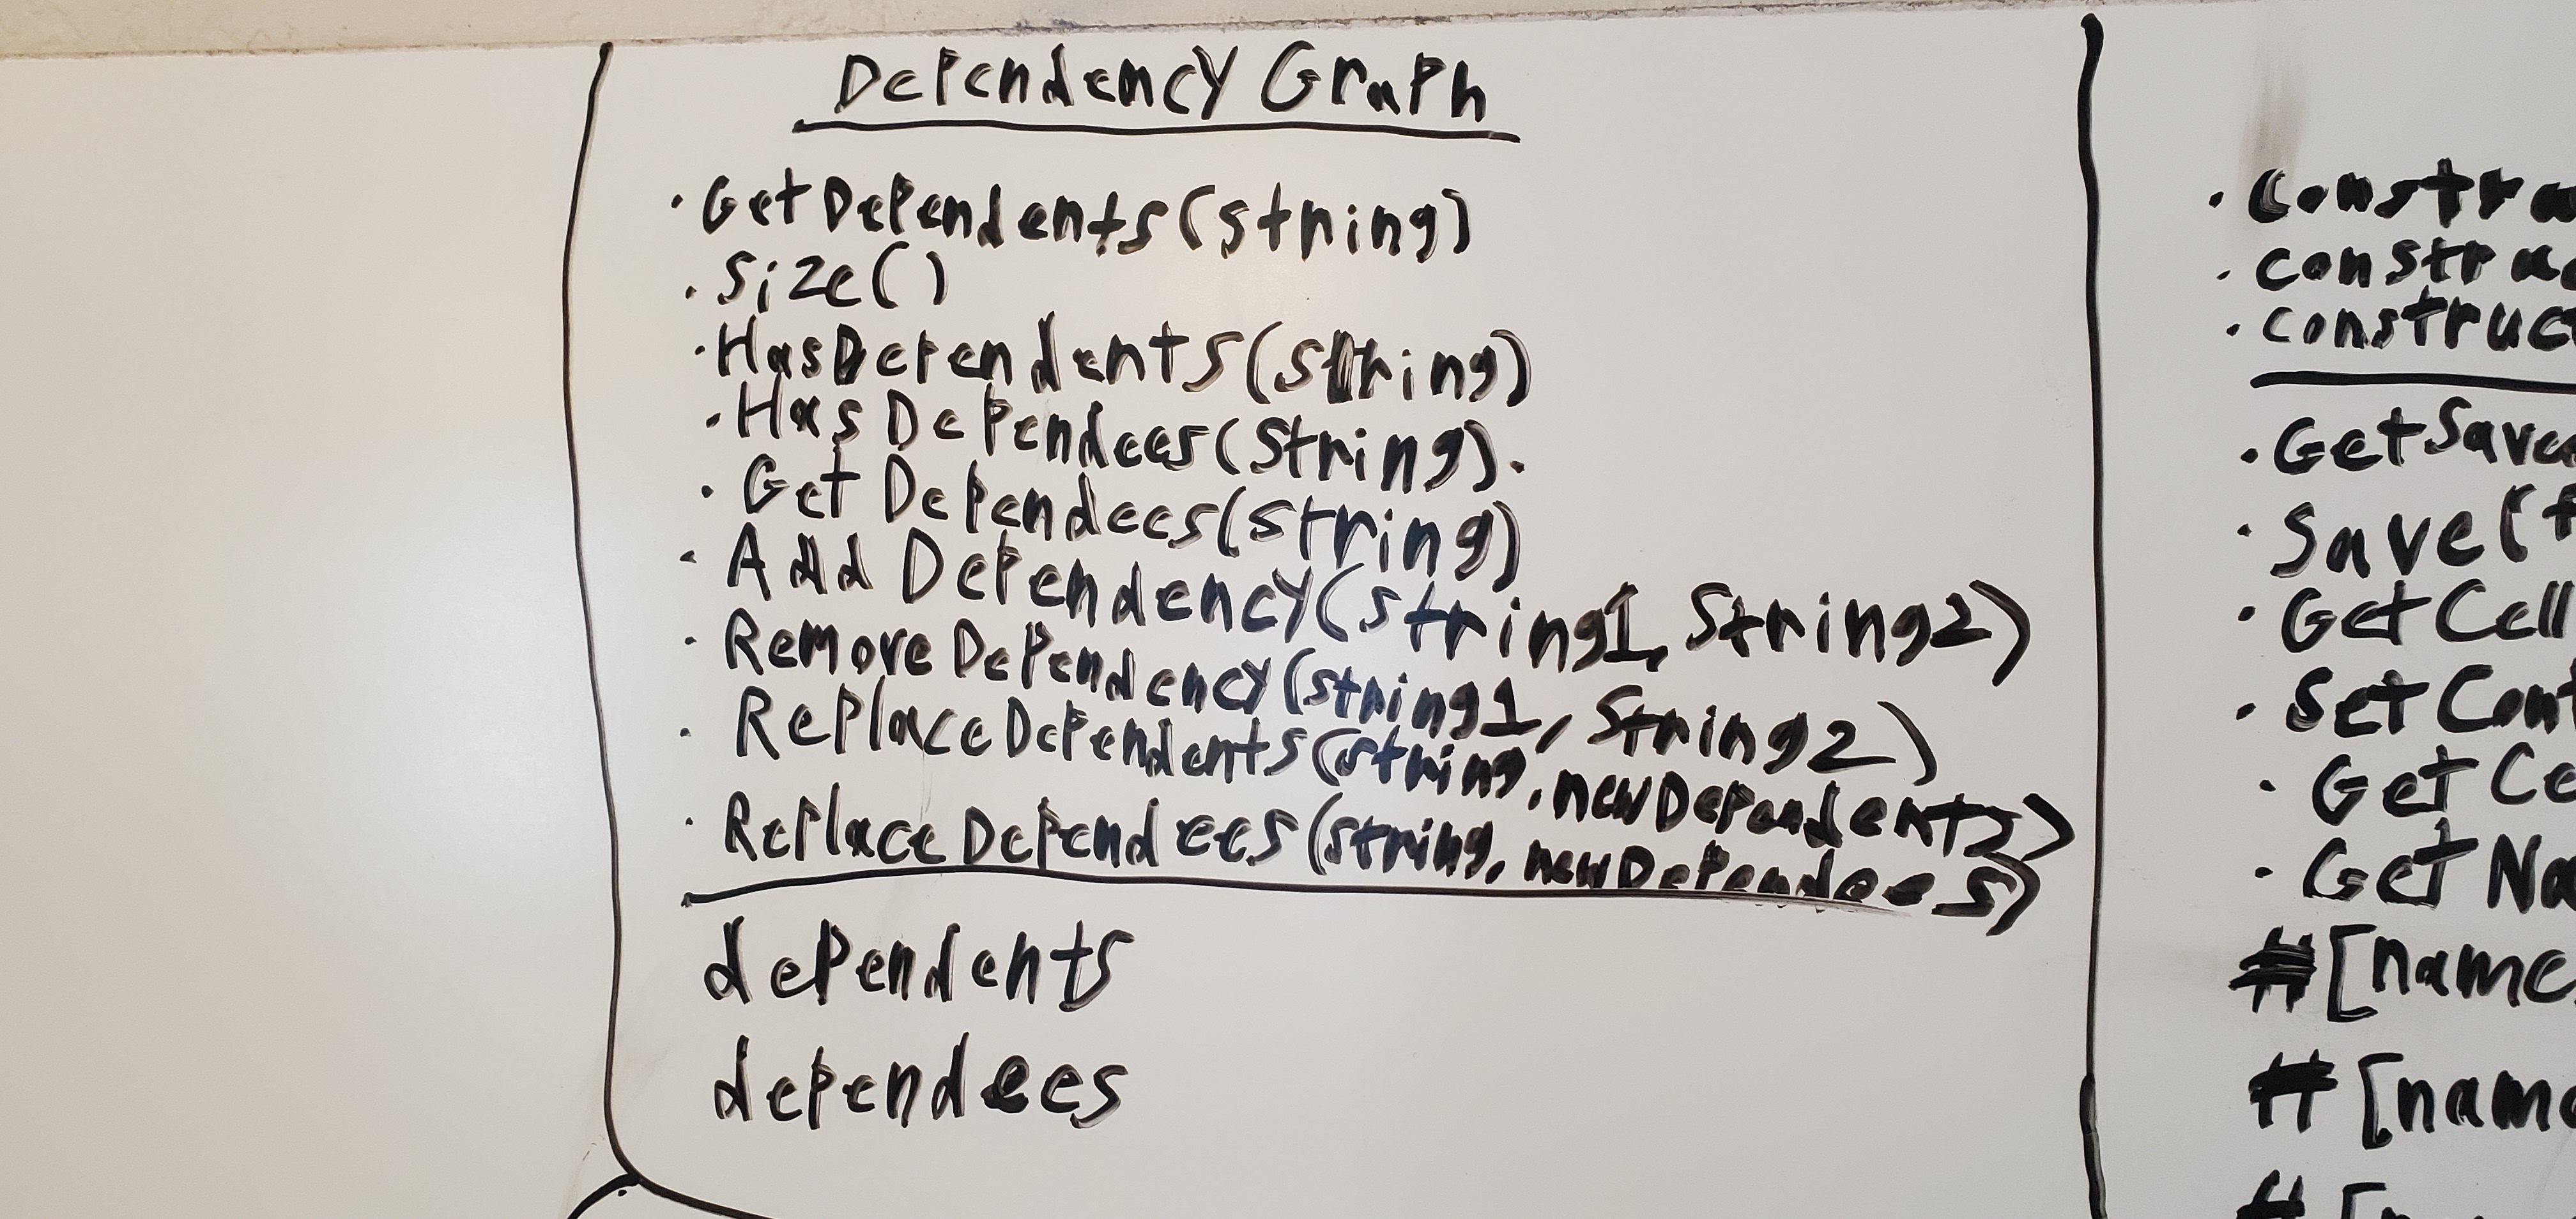 Dependency Graph
· GetDependents(string)
· Size()
· HasDependents(string)
· HasDependees(String).
· GetDependees(string)
· Add Dependency(string1, String2)
· RemoveDependency(string1, String2)
· ReplaceDependents(string, newDependents)
· ReplaceDependees(string, newDependees)
dependents
dependees
· constru
· construc
· construc
· GetSave
· Save(f
· GetCell
· SetCont
· GetCe
· GetNa
#[name
#[name